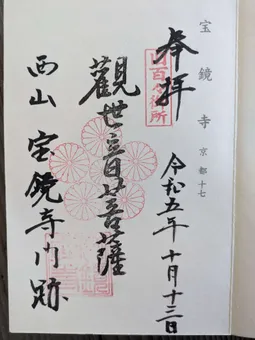 宝鏡寺 京都十七
奉拝
旧百々御所
令和五年十月十三日
觀世音菩薩
西山 宝鏡寺門跡